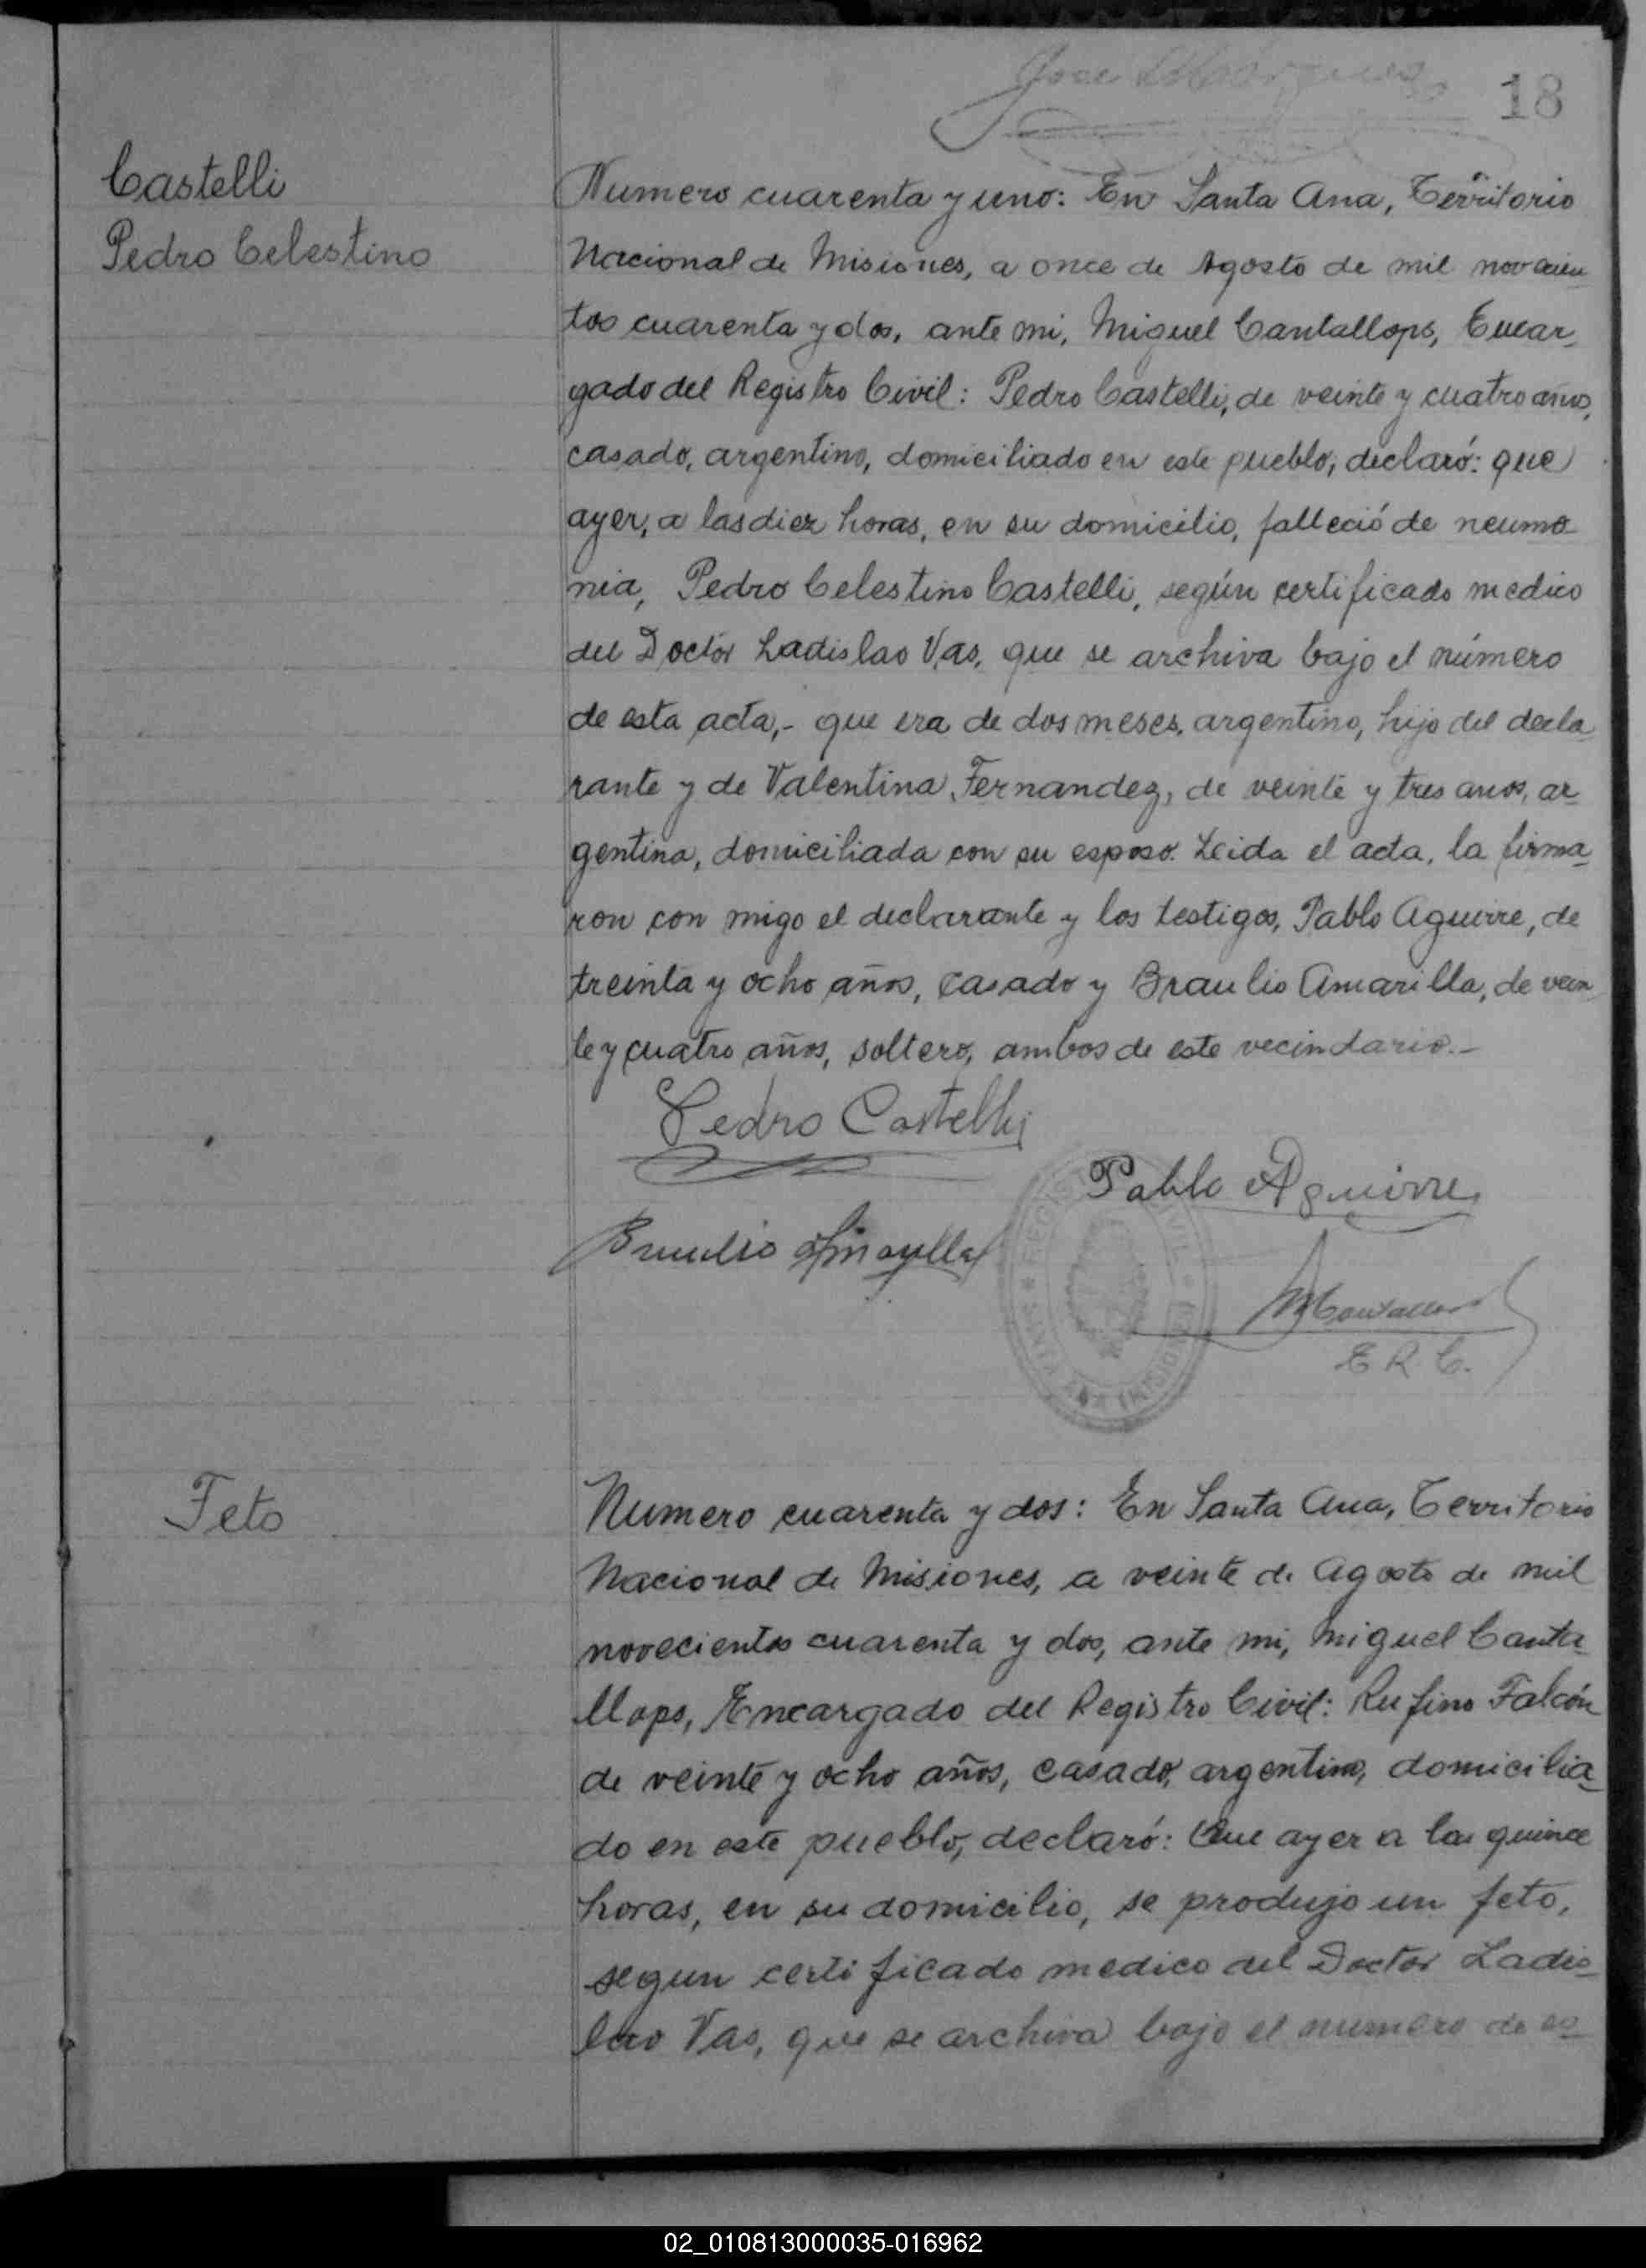 18
Castelli
Pedro Celestino
Numero cuarenta y uno: En Santa Ana, Territorio
Nacional de Misiones, a once de Agosto de mil novecien
tos cuarenta y dos, ante mi, Miguel Cantallops, Encar-
gado del Registro Civil: Pedro Castelli, de veinte y cuatro años,
casado, argentino, domiciliado en este pueblo, declaró: que
ayer, a las diez horas, en su domicilio, falleció de neumo-
nia, Pedro Celestino Castelli, según certificado medico
del Doctor Ladislao Vas, que se archiva bajo el número
de esta acta,- que era de dos meses, argentino, hijo del decla-
rante y de Valentina Fernandez, de veinte y tres anos, ar-
gentina, domiciliada con su esposo. Leida el acta, la firma-
ron con migo el declarante y los testigos, Pablo Aguirre, de
treinta y ocho años, casado y Braulio Amarilla, de vein
te y cuatro años, soltero, ambos de este vecindario.-
Pedro Castelli
Pablo Aguirre
Braulio Amarilla
REGISTRO CIVIL
SANTA ANA (MISIONES)
MCantallops
E R C.
Feto
Numero cuarenta y dos: En Santa Ana, Territorio
Nacional de Misiones, a veinte de Agosto de mil
novecientos cuarenta y dos, ante mi, Miguel Canta-
llops, Encargado del Registro Civil: Rufino Falcón
de veinte y ocho años, casado, argentino, domicilia-
do en este pueblo, declaró: Que ayer a las quince
horas, en su domicilio, se produjo un feto,
segun certificado medico del Doctor Ladis-
lao Vas, que se archiva bajo el numero de es-
02_010813000035-016962